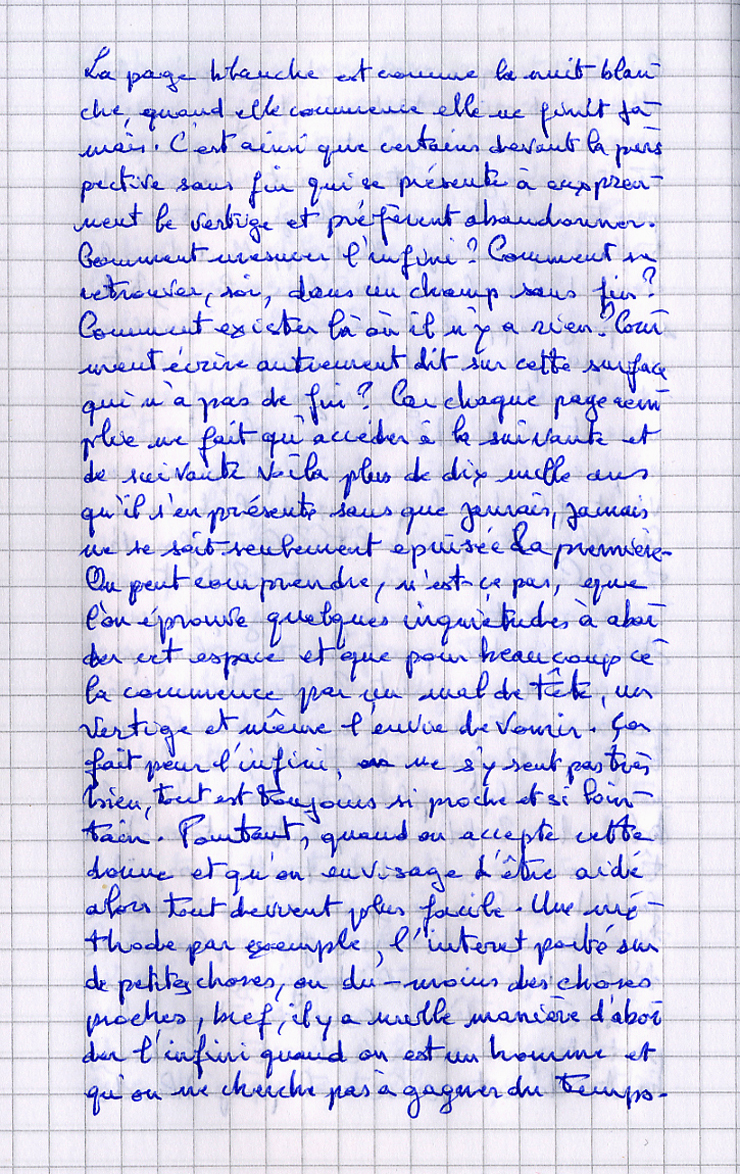 La page blanche est comme la nuit blan-
che, quand elle commence elle ne finit ja-
mais. C'est ainsi que certains devant la pers
pective sans fin qui se présente à eux pren-
nent le vertige et préfèrent abandonner.
Comment mesurer l'infini? Comment se
retrouver, soi, dans un champ sans fin?
Comment exister là où il n'y a rien? Com
ment écrire autrement dit sur cette surface
qui n'a pas de fin? Car chaque page rem
plie ne fait qu'accéder à la suivante et
de suivante voilà plus de dix mille ans
qu'il s'en présente sans que jamais, jamais
ne se soit seulement épuisée la première.
On peut comprendre, n'est-ce pas, que
l'on éprouve quelques inquiétudes à abor
der cet espace et que pour beaucoup ce
la commence par un mal de tête, un
vertige et même l'envie de vomir. Ça
fait peur l'infini, on ne s'y sent pas très
bien, tout est toujours si proche et si loin-
tain. Pourtant, quand on accepte cette
donne et qu'on envisage d'être aidé
alors tout devient plus facile. Une mé-
thode par exemple, l'interet porté sur
de petites choses, ou du-moins des choses
proches, bref, il y a mille manière d'abor
der l'infini quand on est un homme et
qu'on ne cherche pas à gagner du temps.